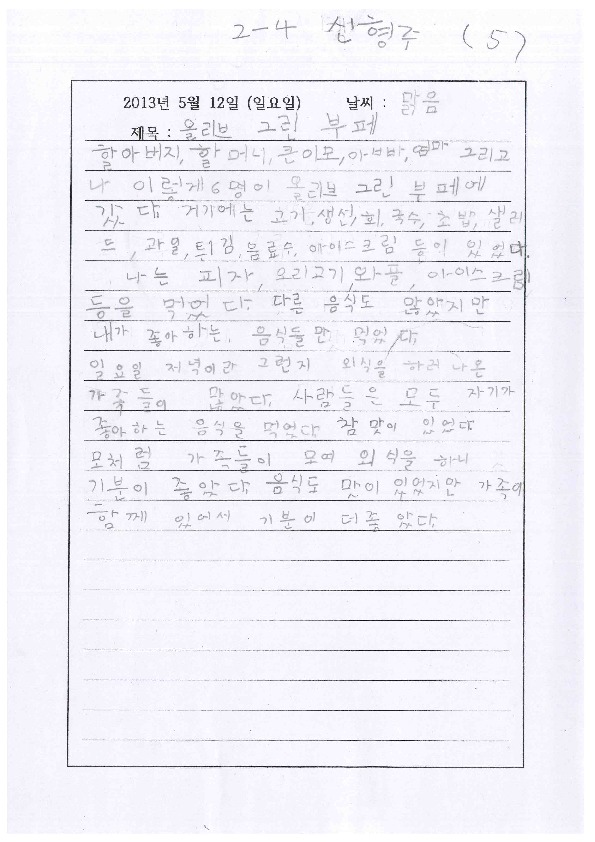 2-4 신형주 (5)
2013년 5월 12일 (일요일) 날씨 : 맑음
제목 : 올리브 그린 부페
할아버지, 할머니, 큰이모, 아빠, 엄마 그리고
나 이렇게 6명이 올리브 그린 부페에
갔다. 거기에는 고기, 생선, 회, 국수, 초밥, 샐러
드, 과일, 튀김, 음료수, 아이스크림 등이 있었다.
나는 피자, 오리고기, 와플, 아이스크림
등을 먹었다. 다른 음식도 많았지만
내가 좋아하는, 음식들만 먹었다.
일요일 저녁이라 그런지 외식을 하러 나온
가족들이 많았다. 사람들은 모두 자기가
좋아하는 음식을 먹었다. 참 맛이 있었다.
모처럼 가족들이 모여 외식을 하니
기분이 좋았다. 음식도 맛이 있었지만 가족이
함께 있어서 기분이 더 좋았다.